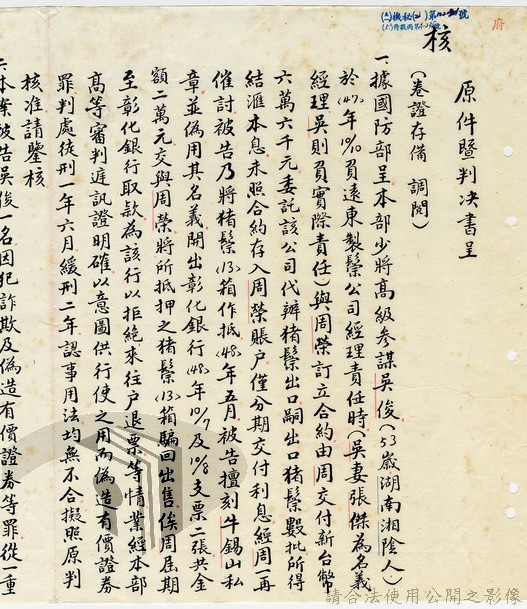 府
核
原件暨判决書呈
(卷證存備　調閱)
一據國防部呈本部少將高級參謀吳俊(53歲湖南湘陰人)
於(47)年10/10負遠東製鬃公司經理責任時(吳妻張傑為名義
經理吳則負實際責任)與周榮訂立合約由周交付新台幣
六萬六千元委託該公司代辦猪鬃出口嗣出口猪鬃數批所得
結滙本息未照合約存入周榮賬户僅分期交付利息經周一再
催討被告乃將猪鬃(13)箱作抵(48)年五月被告擅刻牛錫山私
章並偽用其名義開出彰化銀行(48)年10/7及10/8支票二張共金
額二萬元交與周榮將所抵押之猪鬃(13)箱騙回出售俟周屆期
至彰化銀行取款為該行以拒絶來往户退票等情業經本部
高等審判庭訊證明確以意圖供行使之用而偽造有價證券
罪判處徒刑一年六月緩刑二年認事用法均無不合擬照原判
核准請鑒核
二本案被告吳俊一名因犯詐欺及偽造有價證券等罪從一重
請合法使用公開之影像